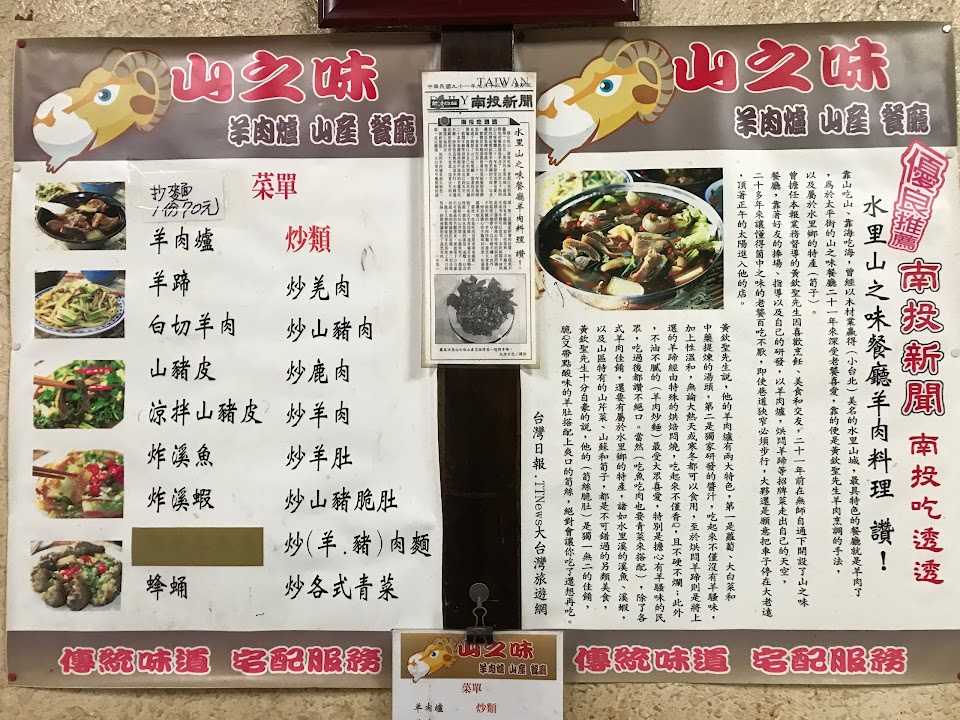 山之味
羊肉爐 山産 餐廳
菜單
抄麵
1份70元
羊肉爐
羊蹄
白切羊肉
山豬皮
涼拌山豬皮
炸溪魚
炸溪蝦
蜂蛹
炒類
炒羌肉
炒山豬肉
炒鹿肉
炒羊肉
炒羊肚
炒山豬脆肚
炒(羊.豬)肉麵
炒各式青菜
傳統味道 宅配服務
TAIWAN
南投新聞
南投吃透透
水里山之味餐廳羊肉料理 讚!
台灣日報.TTNews大台灣旅遊網
山之味
羊肉爐 山産 餐廳
優良推薦
南投新聞 南投吃透透
水里山之味餐廳羊肉料理 讚!
靠山吃山、靠海吃海,曾經以木材業贏得(小台北)美名的水里山城,最具特色的餐廳就是羊肉了
,為於太平街的山之味餐廳二十一年來深受老饕喜愛,靠的便是黃欽聖先生羊肉烹調的手法,
以及屬於水里鄉的特產(筍子)。
曾擔任本報業務督導的黃欽聖先生因喜歡烹飪、美食和交友,二十一年前在無師自通下開設了山之味
餐廳,靠著好友的捧場、指導以及自己的研發,以羊肉爐,烘悶羊蹄等招牌菜走出自己的天空,
二十多年來讓懂得箇中之味的老饕百吃不厭,即使巷道狹窄必須步行,大夥還是願意把車子停在大老遠
,頂著正午的太陽進入他的店。
黃欽聖先生說,他的羊肉爐有兩大特色,第一是蘿蔔、大白菜和
中藥提煉的湯頭,第二是獨家研發的醬汁,吃起來不僅沒有羊騷味,
加上性溫和,無論大熱天或寒冬都可以食用,至於烘悶羊蹄則是將上
選的羊蹄經由特殊的烘焙悶燒,吃起來不僅香心,且不硬不爛;此外
,不油不膩的(羊肉炒麵)最受大眾喜愛,特別是擔心有羊騷味的民
眾,吃過後都讚不絕口。當然(吃魚吃肉也要青菜來搭配),除了各
式羊肉佳餚,還要有屬於水里鄉的特產,諸如水里溪的溪魚、溪蝦,
以及山區特有的山芹菜、山蘇和筍子,都是不可錯過的另類美食,
黃欽聖先生十分自豪的說,他的(筍絲脆肚)是獨一無二的佳餚,
脆Q又帶點酸味的羊肚搭配上爽口的筍絲,絕對會讓你吃了還想再吃。
傳統味道 宅配服務
山之味
羊肉爐 山産 餐廳
菜單
羊肉爐
炒類